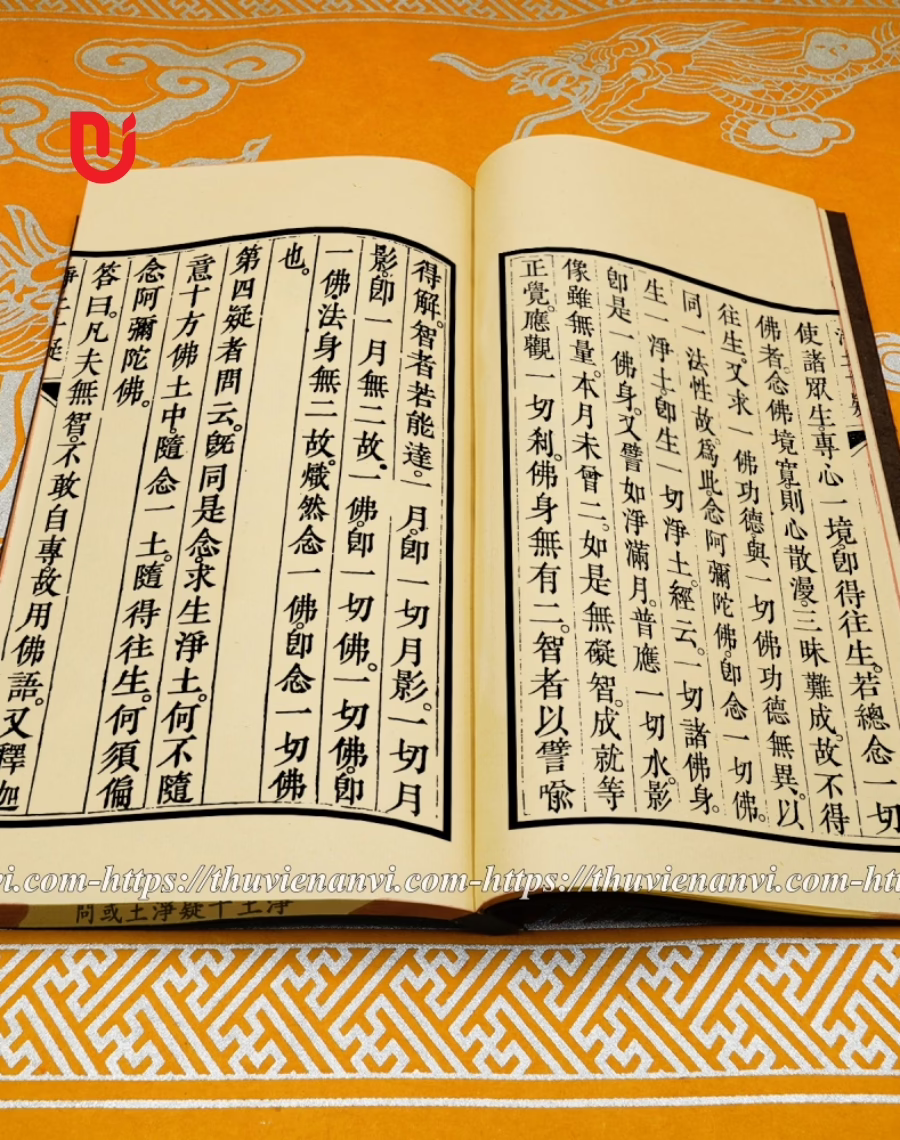 淨土十疑
使諸眾生。專心一境。卽得往生。若總念一切
佛者。念佛境寬。則心散漫。三昧難成。故不得
往生。又求一佛功德。與一切佛功德無異。以
同一法性故。爲此念阿彌陀佛。卽念一切佛。
生一淨土。卽生一切淨土。經云。一切諸佛身。
卽是一佛身。又譬如淨滿月。普應一切水。影
像雖無量。本月未曾二。如是無礙智。成就等
正覺。應觀一切刹。佛身無有二。智者以譬喻
得解。智者若能達。一月。卽一切月影。一切月
影。卽一月無二故。一佛。卽一切佛。一切佛。卽
一佛。法身無二故。熾然念一佛。卽念一切佛
也。
第四疑者問云。旣同是念。求生淨土。何不隨
意十方佛土中。隨念一土。隨得往生。何須偏
念阿彌陀佛。
答曰。凡夫無智。不敢自專。故用佛語。又釋迦
淨土十疑
vi.com-https://thuvienanvi.com-https://thuvienanvi.com-htt
淨土十疑淨土或問